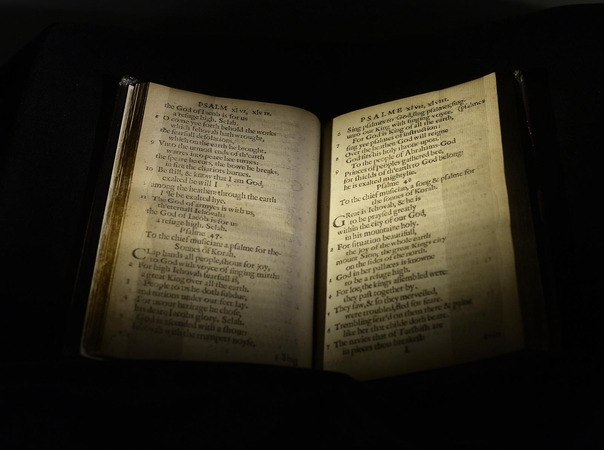 PSALM xlvi, xlvii.
the God of Iacob is for us
a refuge high. Selah.
8 O come yee forth behold the works
which Iehovah hath wrought,
the fearfull desolations,
which on the earth he brought,
9 Vnto the utmost ends of th'earth
warres into peace hee turnes:
the speare he cuts, the bowe he breaks,
in fire the chariots burnes.
10 Be still, & know that I am God,
exalted be will I
among the heathen: through the earth
I'le be exalted hye.
11 The God of armyes is with us,
th'eternall Iehovah:
the God of Iacob is for us
a refuge high. Selah.
Psalme 47.
To the chief musician: a psalme for the
Sonnes of Korah.
CLap hands all people, shout for joy,
to God with voyce of singing mirth:
2 For high Iehovah fearfull is,
a great King over all the earth.
3 People to us he doth subdue,
and nations under our feet lay.
4 For us our heritage he chose,
his deare Iacobs glory. Selah.
5 God is ascended with a shout:
Iehovah with the trumpets noyse.
6 Sing
PSALME xlvii, xlviii.
Sing psalmes to God, sing psalmes, sing
(psalmes
unto our King with singing voyce.
7 For God is King of all the earth,
sing yee psalmes of instruction:
8 Over the heathen God will reigne
God sits his holy throne upon.
9 To the people of Abrahams God
Princes of peoples gathered bee,
for shields of th'earth to God belong:
he is exalted mightylie.
Psalme 48
To the chief musician, a song & psalme for
the sonnes of Korah.
GReat is Iehovah, & he is
to be praysed greatly
within the city of our God,
in his mountaine holy.
2 For situation beautifull,
the joy of the whole earth
mount Sion; the great Kings city
on the sides of the north.
3 God in her pallaces is knowne
to be a refuge high.
4 For loe, the kings assembled were:
they past together by.
5 They saw, & so they merveiled,
were troubled, fled for feare.
6 Trembling seiz'd on them there & paine
like her that childe doth beare.
7 The navies that of Tarshish are
in pieces thou breakest:
I.